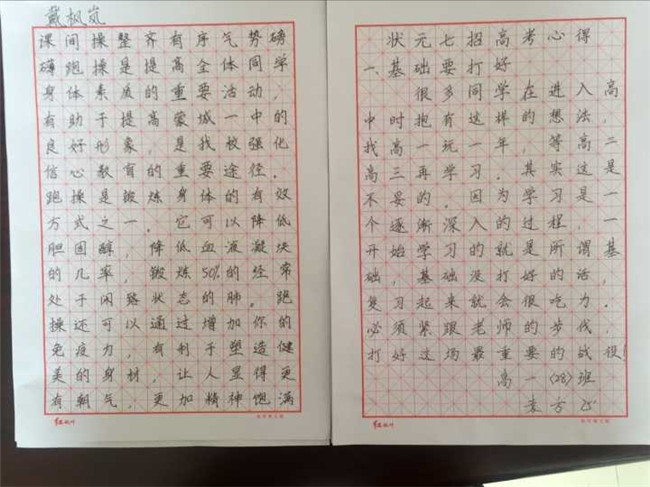 戴枫岚
课间操整齐有序气势磅
礴跑操是提高全体同学
身体素质的重要活动，
有助于提高蒙城一中的
良好形象，是我校强化
信心教育的重要途径。
跑操是锻炼身体的有效
方式之一。它可以降低
胆固醇，降低血液凝块
的几率，锻炼50%的经常
处于闲置状态的肺。跑
操还可以通过增加你的
免疫力，有利于塑造健
美的身材，让人显得更
有朝气，更加精神饱满
状元七招高考心得
一、基础要打好
很多同学在进入高
中时抱有这样的想法，
我高一玩一年，等高二
高三再学习。其实这是
不妥的。因为学习是一
个逐渐深入的过程，一
开始学习的就是所谓基
础，基础没打好的话，
复习起来就会很吃力。
必须紧跟老师的步伐，
打好这场最重要的战役！
高一（28）班